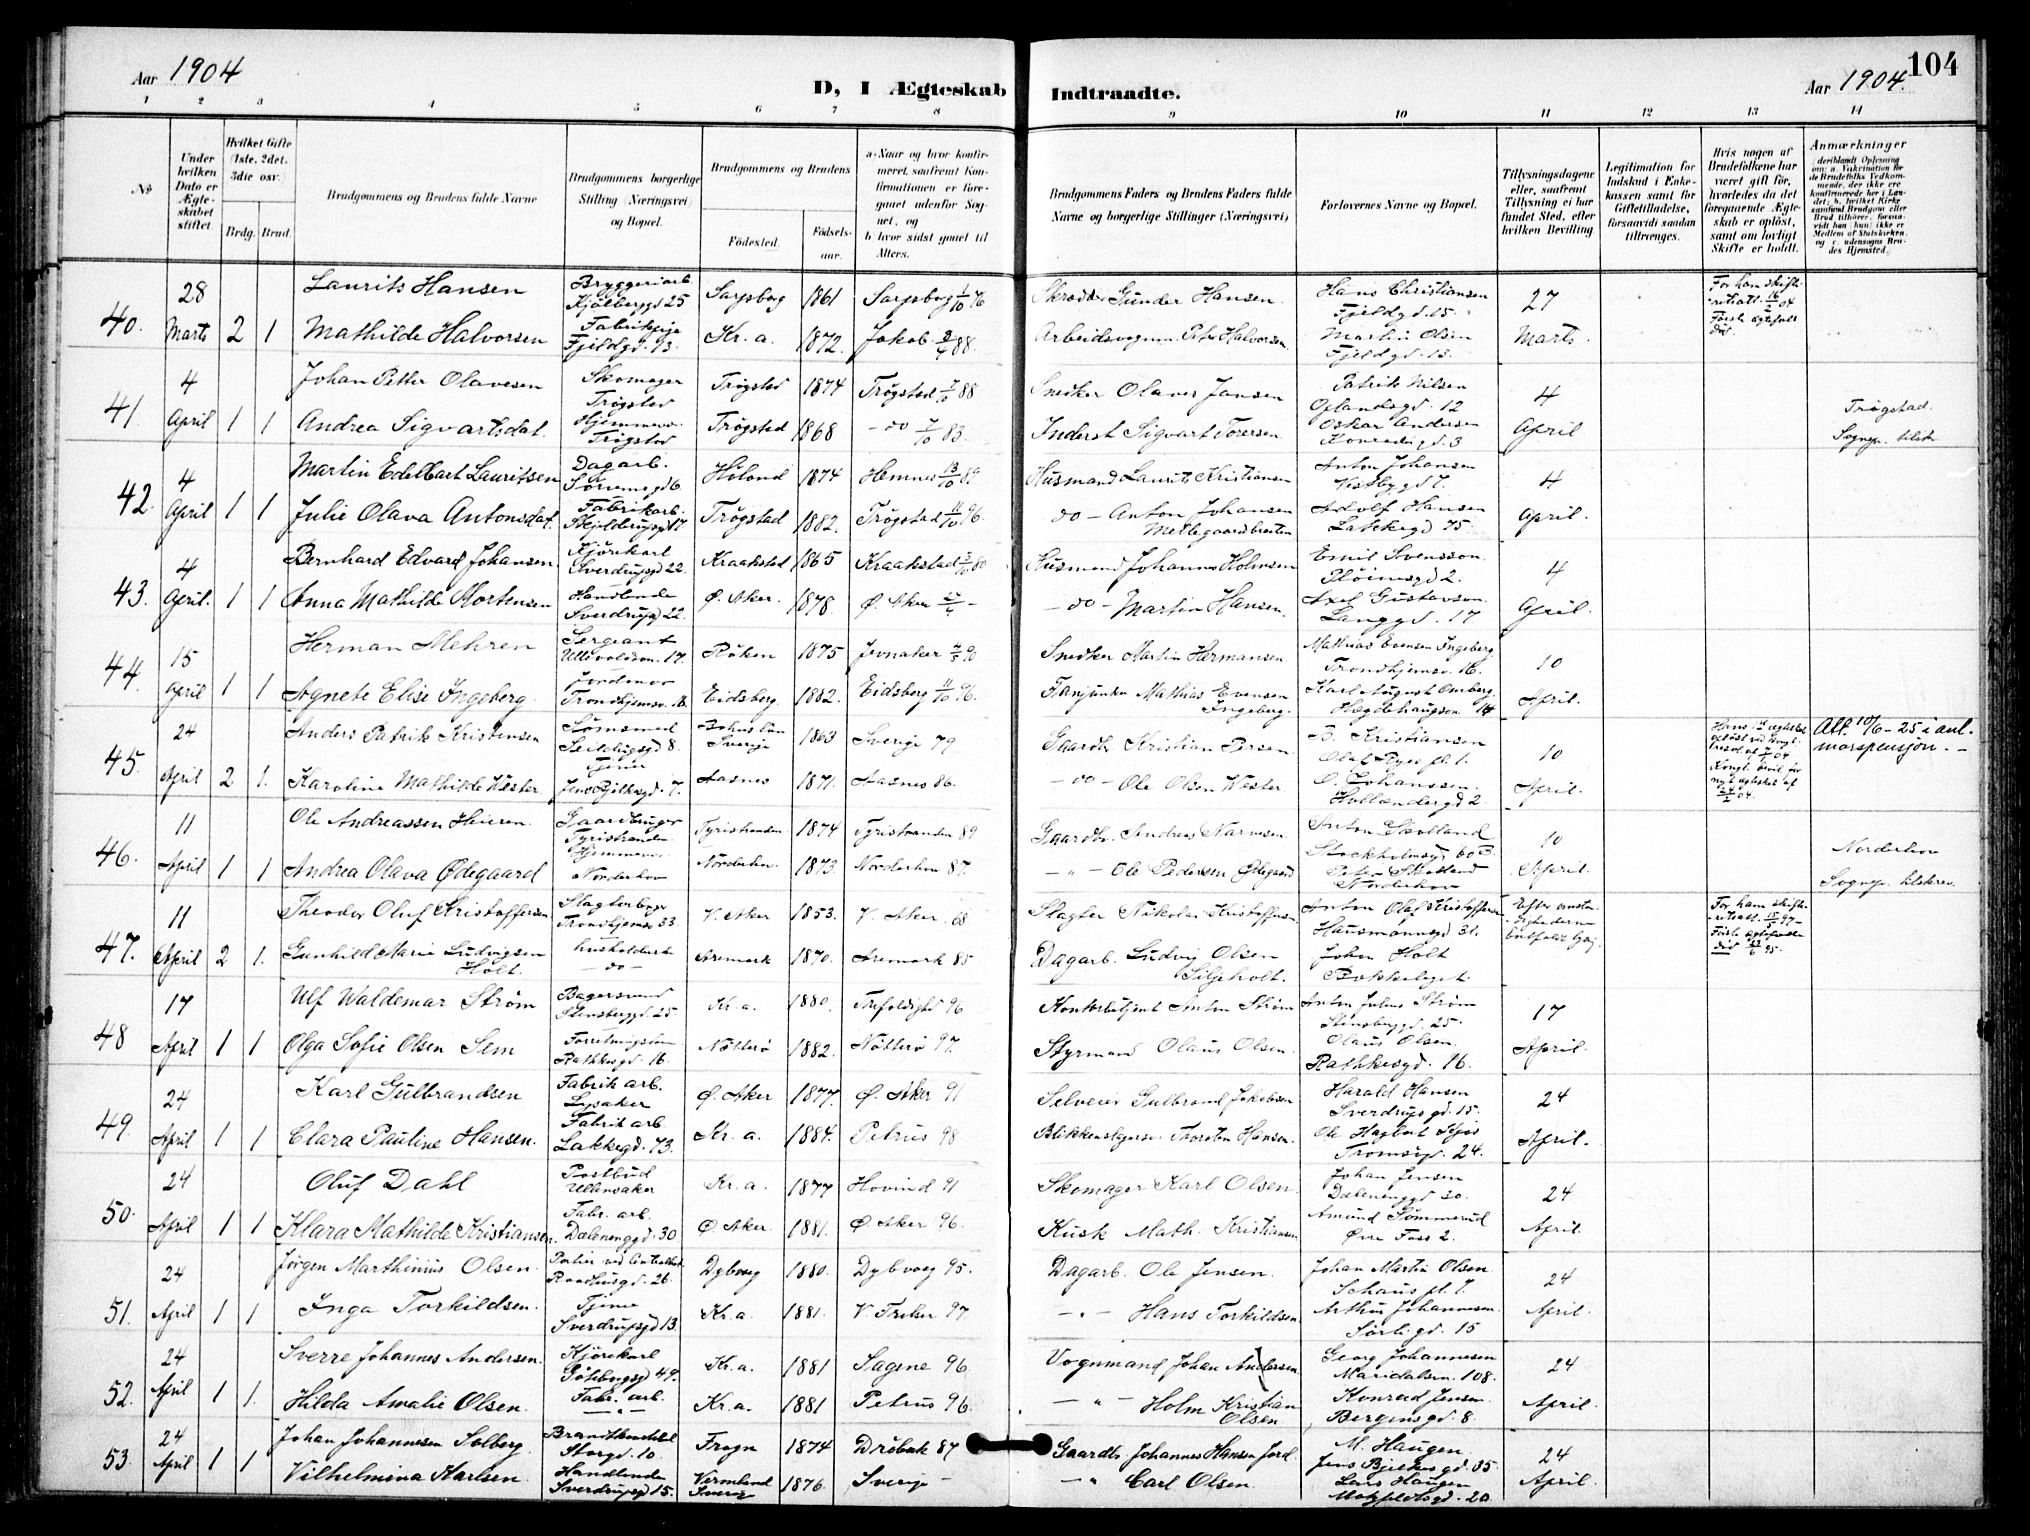 Aar 1904
D, I Ægteskab Indtraadte.
Aar 1904.
104
1 2 3 4 5 6 7 8 9 10 11 12 13 14
No
Under hvilken Dato er Ægteskabet stiftet
Hvilket Gifte (1ste, 2det, 3die osv.)
Brdg. Brud.
Brudgommens og Brudens fulde Navne
Brudgommens borgerlige Stilling (Næringsvei) og Bopæl.
Brudgommens og Brudens
Fødested. Fødselsaar.
a. Naar og hvor konfirmeret, saafremt Konfirmationen er foregaaet udenfor Sognet, og
b. hvor sidst gaaet til Alters.
Brudgommens Faders og Brudens Faders fulde Navne og borgerlige Stillinger (Næringsvei)
Forlovernes Navne og Bopæl.
Tillysningsdagene eller, saafremt Tillysning ei har fundet Sted, efter hvilken Bevilling.
Legitimation for Indskud i Enkekassen samt for Giftetilladelse, forsaavidt saadan tiltrænges.
Hvis nogen af Brudefolkene har været gift før, hvorledes da det foregaaende Ægteskab er opløst, samt om lovligt Skifte er holdt.
Anmærkninger
40. 28 Marts 2 1
Laurits Hansen Bryggeriarb Kjølberggd 25 Sarpsborg 1861 Sarpsborg 1/10 76 Skrædder Gunder Hansen. Hans Christiansen Fjeldgd. 15. 27
Mathilde Halvorsen Fabrikpige Fjeldgd. 13. Kr. a. 1872. Jakob 88. Arbeidsvogum. Peter Halvorsen. Martin Olsen Fjeldgd. 13. Marts.
For ham skifteretsatt. 16/2 04 Første ægtefælle død.
41 4 April 1 1
Johan Petter Olavesen Skomager Trøgstad Trøgstad 1874 Trøgstad 7/10 88 Snedker Olaves Jansen Patrik Nilsen Oplandsgd. 12 4
Andrea Sigvartsdat. Hjemmev. Trøgstad Trøgsted 1868 - do 7/10 83. Inderst Sigvart Torersen Oskar Andersen Konradigd. 3 April
Trøgstad. Sognep. tilst.
42. 4 April 1 1
Martin Edelbart Lauritsen Dagarb. Sørensgd 6 Høland 1874 Hemnes 13/10 89 Husmand Laurits Kristiansen Anton Johansen Vestbygd 7. 4
Julie Olava Antonsdat. Fabrikarb. Skjoldrupsgd 17 Trøgstad 1882. Trøgstad 11/10 96. - do - Anton Johansen Mellegaardbraaten Adolf Hansen Lakkegd 75. April.
43. 4 April. 1 1
Bernhard Edvard Johansen Kjørekarl Sverdrupsgd 22. Kraakstad 1865 Kraakstad 3/10 80 Husmand Johannes Holmsen Emil Svensson. Pløiensgd 2. 4
Anna Mathilde Mortensen Handlende Sverdrupsgd 22. Ø. Aker. 1878. Ø. Aker - - do - Martin Hansen. Axel Gustavson. Langgd. 17 April.
44. 15 April 1 1
Herman Mehren Sergeant Ullevoldsv. 17. Røken 1875 Jevnaker 90 Snedker Martin Hermansen Mathias Evensen Ingeberg Trondhjemsv. 16. 10
Agnete Elise Ingeberg. Jordmor Trondhjemsv. 16. Eidsberg. 1882. Eidsberg 11/10 96. Fanejunker Mathias Evensen Ingeberg. Karl August Omberg. Hægdehaugsv. 14 April.
45. 24 April 2 1.
Anders Patrik Kristensen Tømsmed Seildugsgd 8. Bohus Län Sverige 1863 Sverige 79 Gaardbr. Kristian Persen B. Kristiansen Olaf Ryes pl. 1. 10
Karoline Mathilde Wester Tjener Jens Bjelkesgd. 7. Aasnes 1871. Aasnes 86. - do - Ole Olsen Wester O. Johanssen. Hollændergd 2. April.
Att. 10/6 - 25 i anl. morspensjon. -
46. 11 April 1 1
Ole Andreassen Heieren. Gaardbruger Tyristranden Tyristranden. 1874 Tyristranden 89 Gaardbr. Andreas Narvesen Anton Skolland Stockholmsgd 60 B. 10
Andrea Olava Ødegaard Hjemmev. Norderhov Norderhov. 1873. Norderhov 87. - " - Ole Pedersen Ødegaard Peter Skolland Norderhov April.
Norderhov Sognep. tilskrev.
47. 11 April 2 1.
Theodor Oluf Kristoffersen Slagterborger Trondhjemsv 33 V. Aker 1853. V. Aker. 68 Slagter Nikolai Kristoffersen Anton Olaf Kristoffersen Hausmannsgd 31. Efter omstændighederne bortfaldt
Gunhild Marie Ludvigsen Holt. husholderske - do - Aremark 1870. Aremark 85 Dagarb. Ludvig Olsen Siljeholt. Johan Holt Bækkelaget.
For ham skifteretsatt. 15/5 97 - Første ægtefælle død 95.
48 17 April 1 1
Ulf Waldemar Strøm Bagersvend Stensberggd. 25. Kr. a. 1880. Trefoldighed 96 Kontorbetjent Anton Strøm Anton Julius Strøm Stensberggd. 25. 17
Olga Sofie Olsen Sem Forretningsdam Rathkesgd. 16. Nøtterø 1882. Nøtterø 97. Styrmand Olaus Olsen. Olaus Olsen. Rathkesgd. 16. April.
49. 24 April 1 1
Karl Gulbrandsen Fabrik arb. Lysaker Ø. Aker 1877. Ø. Aker 91 Selveier Gulbrand Jakobsen Harald Hansen Sverdrups gd. 15. 24
Clara Pauline Hansen. Fabrik arb Lakkegd. 73. Kr. a. 1884. Petrus 98 Blikkenslagersv. Thorsten Hansen. Ole Hagbart Tromsøgd. 24. April.
50. 24 April 1 1
Oluf Dahl Postbud Ullensaker Kr. a. 1877 Hovind 91 Skomager Karl Olsen. Johan Jensen Dælenenggd 30. 24
Klara Mathilde Kristiansen. Fabr. arb. Dælenenggd. 30 Ø. Aker. 1881. Ø Aker 96. Kusk Math. Kristiansen Amund Sømmerud Øvre Foss 2. April.
51. 24 April 1 1
Jørgen Marthinius Olsen. Portier ved Raadhusgd. 26. Dybvaag 1880. Dybvaag 95. Dagarb. Ole Jensen. Johan Martin Olsen Schous pl. 7. 24
Inga Torkildsen. Tjener Sverdrupsgd 13. Kr. a. 1881. V. Aker 97. - " - Hans Torkildsen. Arthur Johannesen. Sørligd. 15 April.
52. 24 April 1 1.
Sverre Johannes Andersen. Kjørekarl Gøteborgsgd 49. Kr. a. 1881 Sagene 96. Vognmand Johan Andersen Georg Johannesen Maridalsv. 108. 24
Hilda Amalie Olsen. Fabr. arb. - " - Kr. a. 1881 Petrus 96. - " - Holm Kristian Olsen Konrad Jensen Bergensgd. 8. April.
53. 24 April 1 1
Johan Johannesen Solberg. Brandkonstabel Storgd. 10. Frogn 1874 Drøbak 87 Gaardbr Johannes Hansen Jord. M. Haugen. Jens Bjelkes gd. 35 24
Vilhelmina Karlsen. Handlende Sverdrupsgd 15. Vermland Sverige 1876. Sverige - - " Carl Olsen. Lars Haugen Motzfeldtsgd. 20. April.